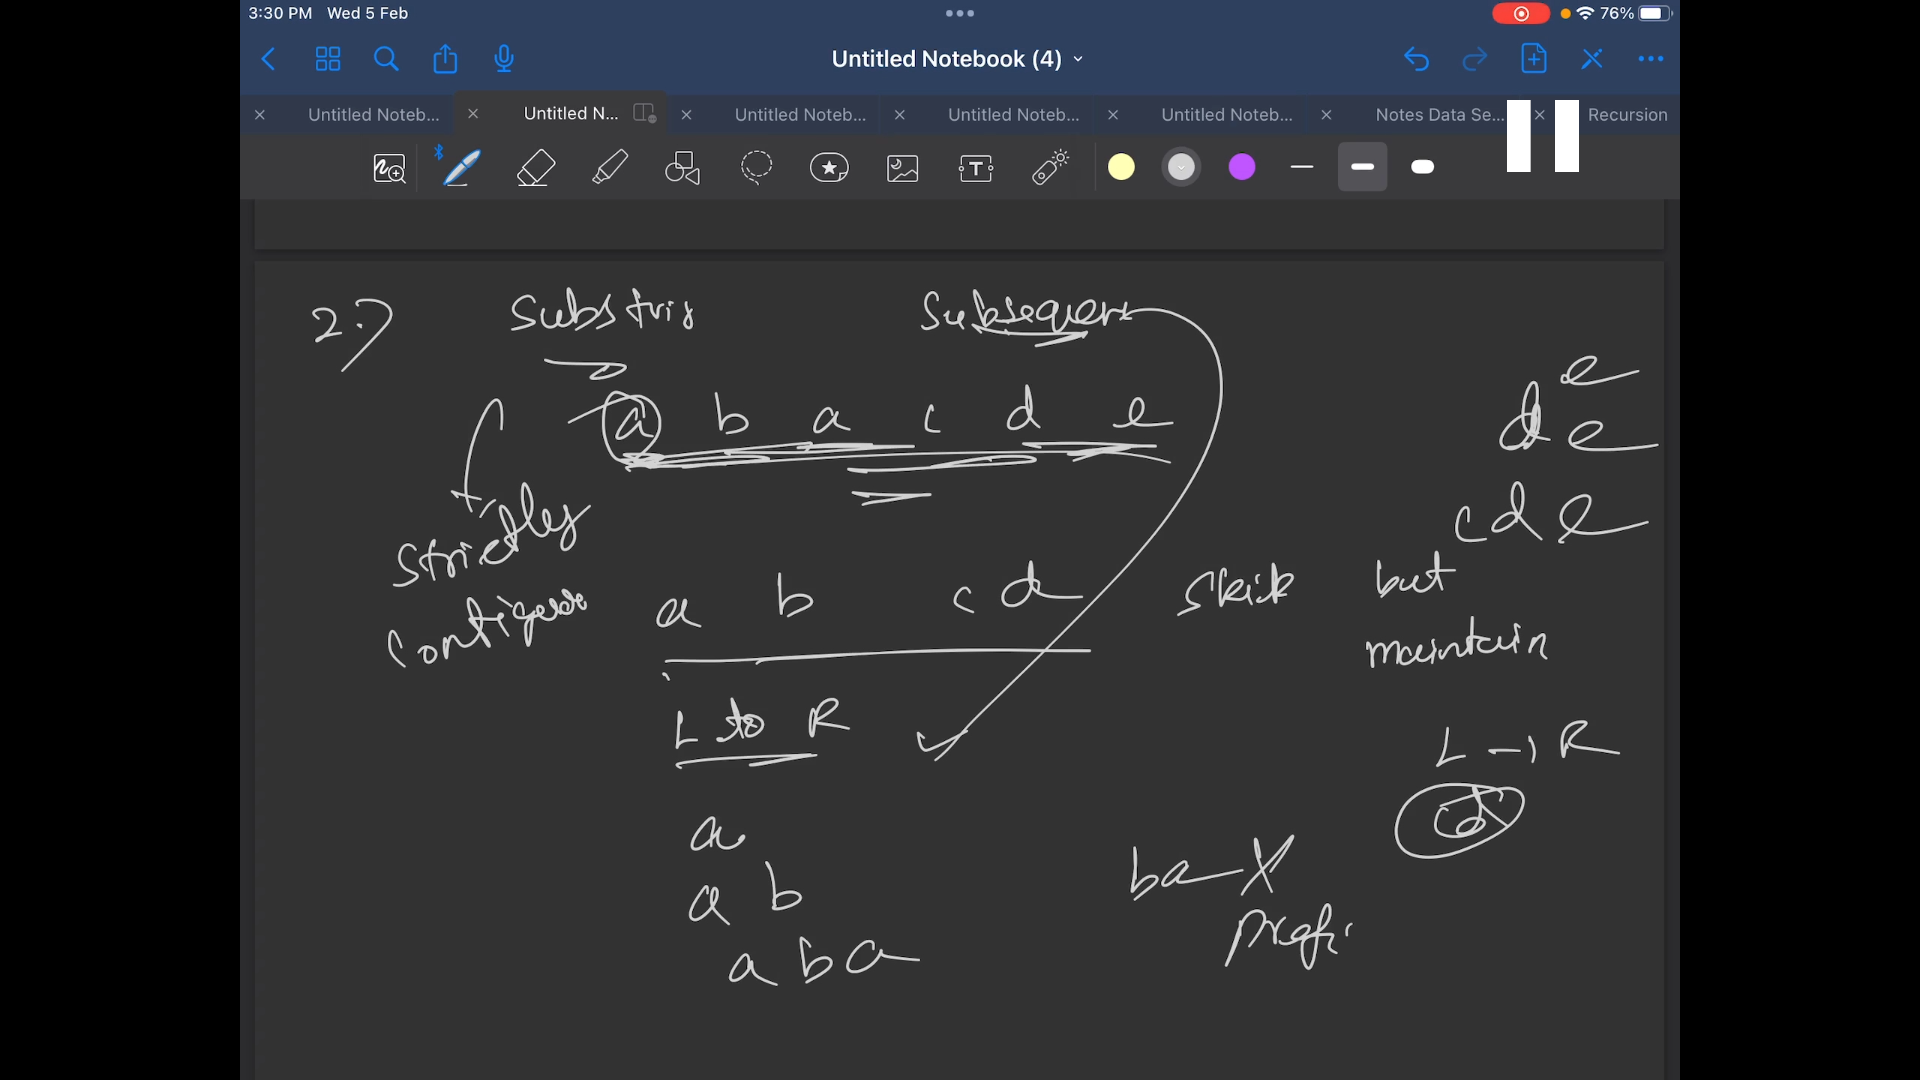 3:30 PM Wed 5 Feb
76%
Untitled Notebook (4)
Untitled Noteb...
Untitled N...
Untitled Noteb...
Untitled Noteb...
Untitled Noteb...
Notes Data Se...
Recursion
T
2.)
Substrig
Subsequen
e
a b a c d e
d e
c d e
strictly
contiguous
a b c d
skip but
maintain
L to R
L → R
cd
a
a b
a b a
ba X
prefi